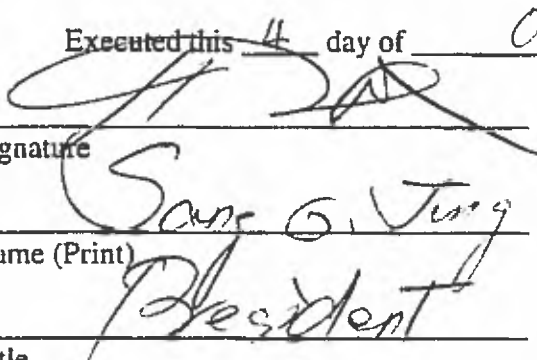 Executed this 4 day of
gnature
Sang G. Jung
ame (Print)
President
tle